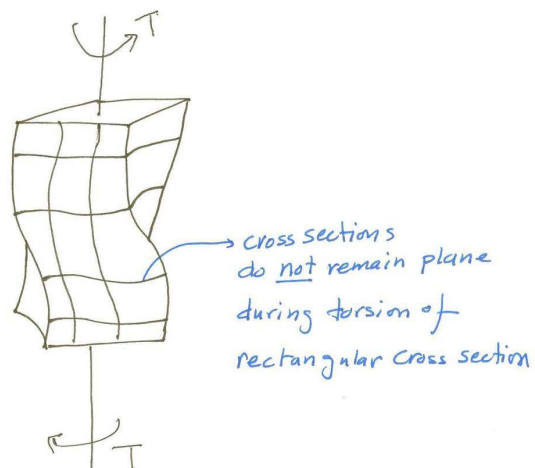 T
cross sections
do not remain plane
during torsion of
rectangular cross section
T